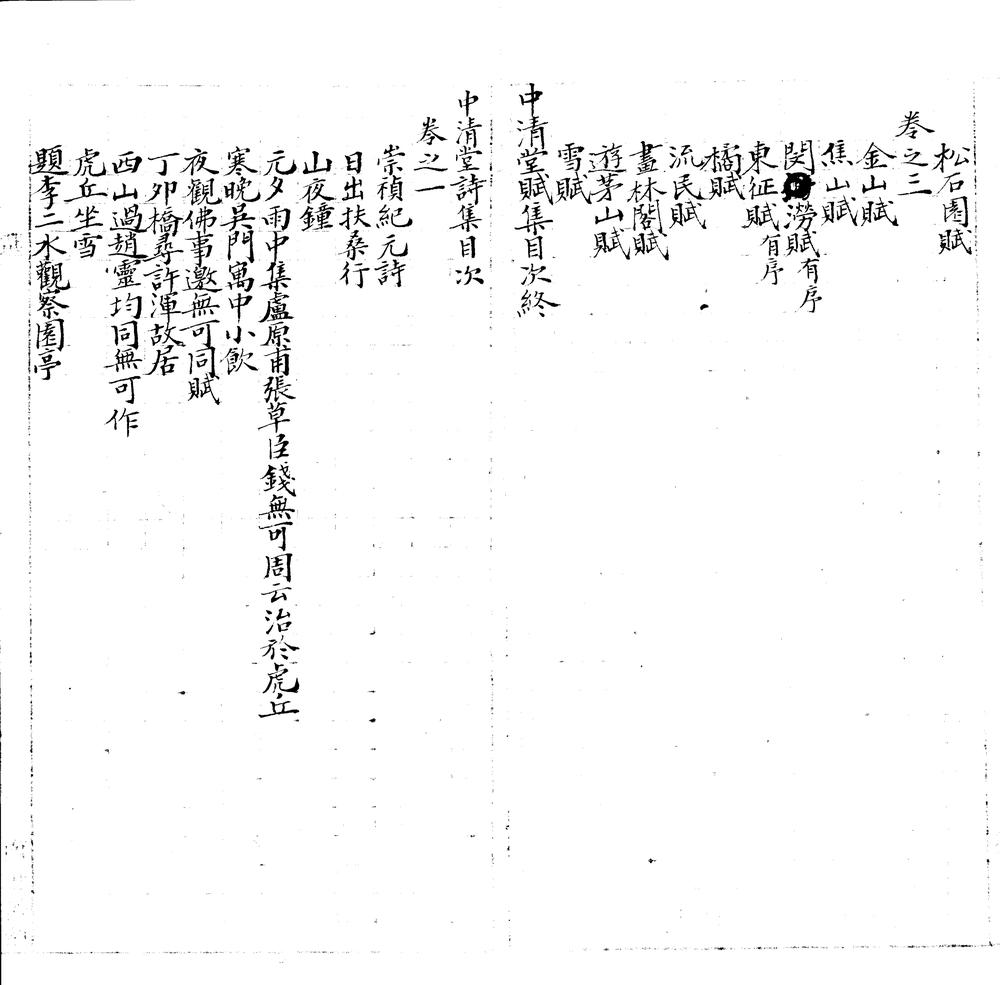 松石園賦
卷之三
金山賦
焦山賦
閔澇賦有序
東征賦有序
橘賦
流民賦
畫林閣賦
遊茅山賦
雪賦
中清堂賦集目次終
中清堂詩集目次
卷之一
崇禎紀元詩
日出扶桑行
山夜鐘
元夕雨中集盧原甫張草臣錢無可周云治於虎丘
寒晚吳門寓中小飲
夜觀佛事邀無可同賦
丁夘橋尋許渾故居
西山過趙靈均同無可作
虎丘坐雪
題李二水觀察園亭